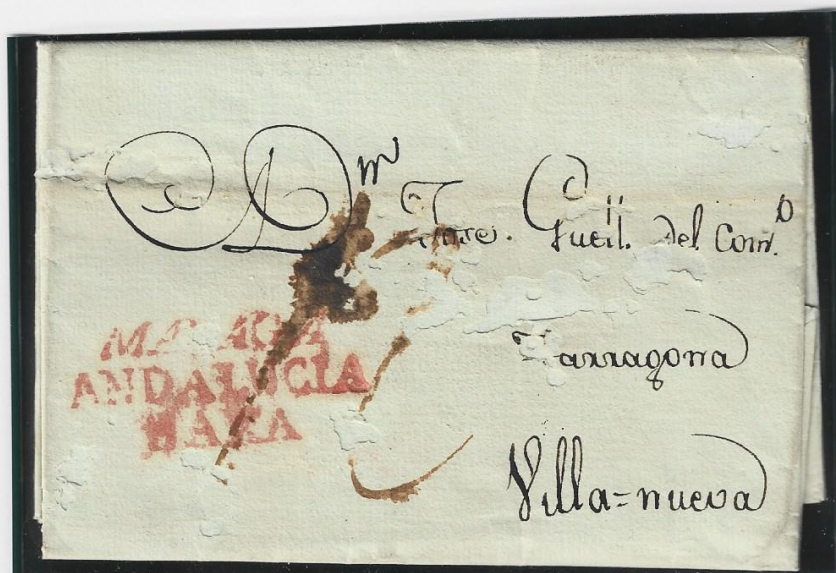 A Dⁿ Jose. Guell. del Com.º
Tarragona
Villa=nueva
MALAGA
ANDALUCIA
BAXA